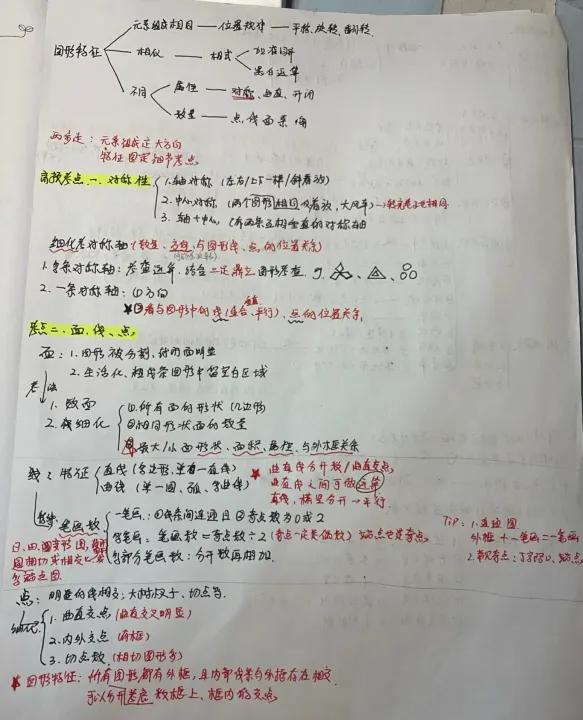 图形特征
元素组成相同 — 位置规律 — 平移、旋转、翻转
相似 — 样式
黑白运算
不同
属性 — 对称、曲直、开闭
数量 — 点、线、面、素、角
两步走：元素组成定大方向
特征图定细节考点
高频考点一、对称性
1. 轴对称（左右/上下一样/斜着放）
2. 中心对称（两个图形相同反着放，大风车）
3. 轴+中心（有两条互相垂直的对称轴
细化考对称轴（数量、方向、与图形线、点的位置关系）
1. 多条对称轴：考查数量，结合 图形考查
2. 一条对称轴：①方向
★②看与图形中的线（重合、平行）、点的位置关系
考点二、面、线、点
面：1. 图形被分割，封闭面明显
2. 生活化、粗线条图形中留空白区域
考法
1. 数面
2. 面细化
①所有面的形状（几边形）
②相同形状面的数量
③最大/小面形状、面积、属性、与外框关系
线：特征
直线（多边形，单着一直线）
曲线（单一圆、弧、多曲线）
★ 曲直线分开数/曲直交点
曲直线之间可做运算
直线，横竖分开→平行
笔画数
一笔画：①线条间连通且②奇点数为0或2
多笔画：笔画数=奇点数÷2（奇点一定是偶数）端点也是奇点
多部分笔画数：分开数再相加
日、田、圆变形图，
圆相切或相交
多端点图
Tip：1. 连通图
外框+一笔画=一笔画
2. 数奇点： 端点
点：明显的线相交；大树杈子、切点等
细化
1. 曲直交点（曲直交叉明显）
2. 内外交点（有框）
3. 切点数（相切图形多）
★ 图形特征：所有图形都有外框，且内部线条与外框存在相交
可以分开考虑 数框上、框内的交点